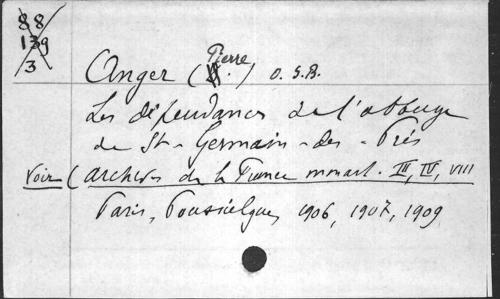 88
139
3
Anger (Pierre) O.S.B.
Les dépendances de l'abbaye
de St-Germain-des-Prés
voir (archives de la France monast. III, IV, VIII
Paris, Poussielgue, 1906, 1907, 1909